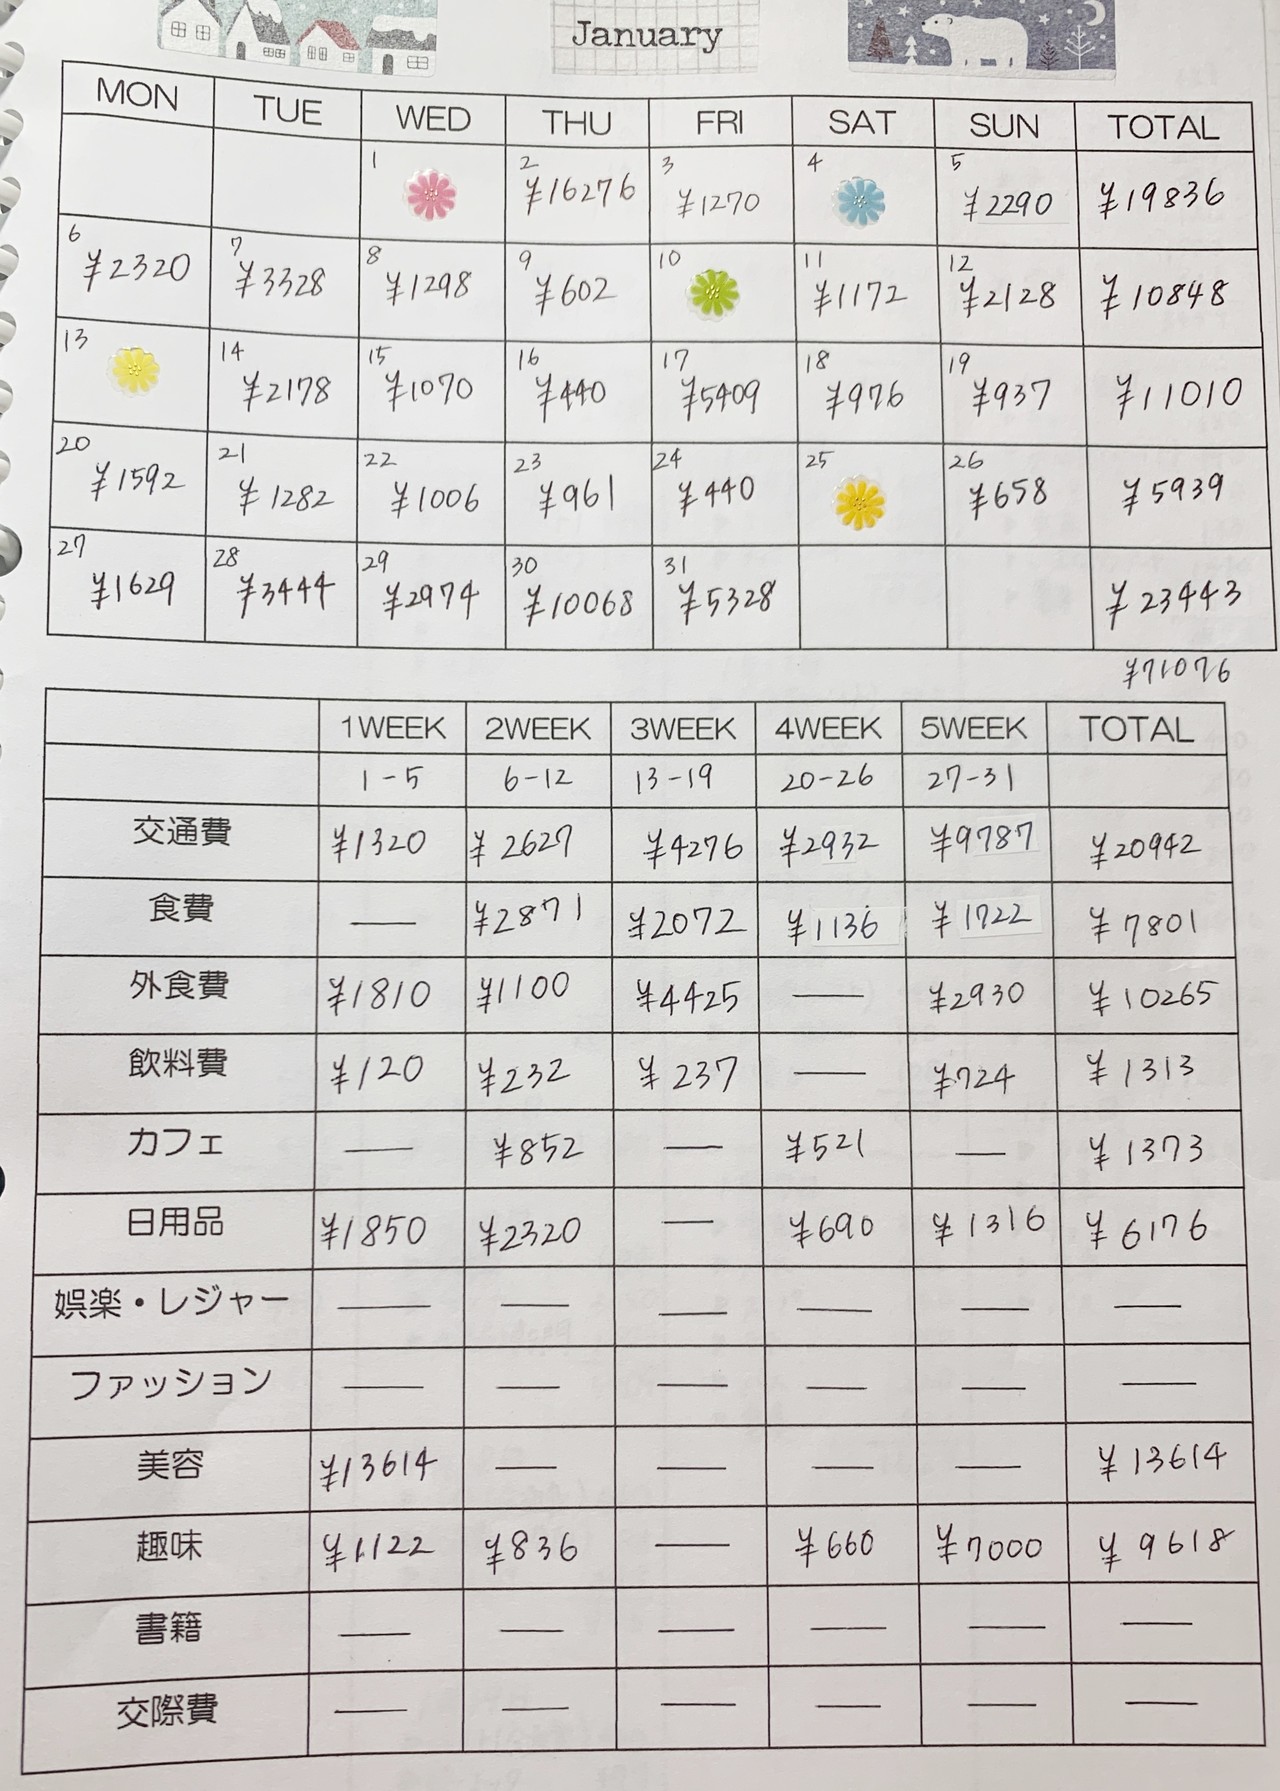 January
MON TUE WED THU FRI SAT SUN TOTAL
1 2 ¥16276 3 ¥1270 4 5 ¥2290 ¥19836
6 ¥2320 7 ¥3328 8 ¥1298 9 ¥602 10 11 ¥1172 12 ¥2128 ¥10848
13 14 ¥2178 15 ¥1070 16 ¥440 17 ¥5409 18 ¥976 19 ¥937 ¥11010
20 ¥1592 21 ¥1282 22 ¥1006 23 ¥961 24 ¥440 25 26 ¥658 ¥5939
27 ¥1629 28 ¥3444 29 ¥2974 30 ¥10068 31 ¥5328 ¥23443
¥71076
1WEEK 2WEEK 3WEEK 4WEEK 5WEEK TOTAL
1-5 6-12 13-19 20-26 27-31
交通費 ¥1320 ¥2627 ¥4276 ¥2932 ¥9787 ¥20942
食費 — ¥2871 ¥2072 ¥1136 ¥1722 ¥7801
外食費 ¥1810 ¥1100 ¥4425 — ¥2930 ¥10265
飲料費 ¥120 ¥232 ¥237 — ¥724 ¥1313
カフェ — ¥852 — ¥521 — ¥1373
日用品 ¥1850 ¥2320 — ¥690 ¥1316 ¥6176
娯楽・レジャー — — — — — —
ファッション — — — — — —
美容 ¥13614 — — — — ¥13614
趣味 ¥1122 ¥836 — ¥660 ¥7000 ¥9618
書籍 — — — — — —
交際費 — — — — — —